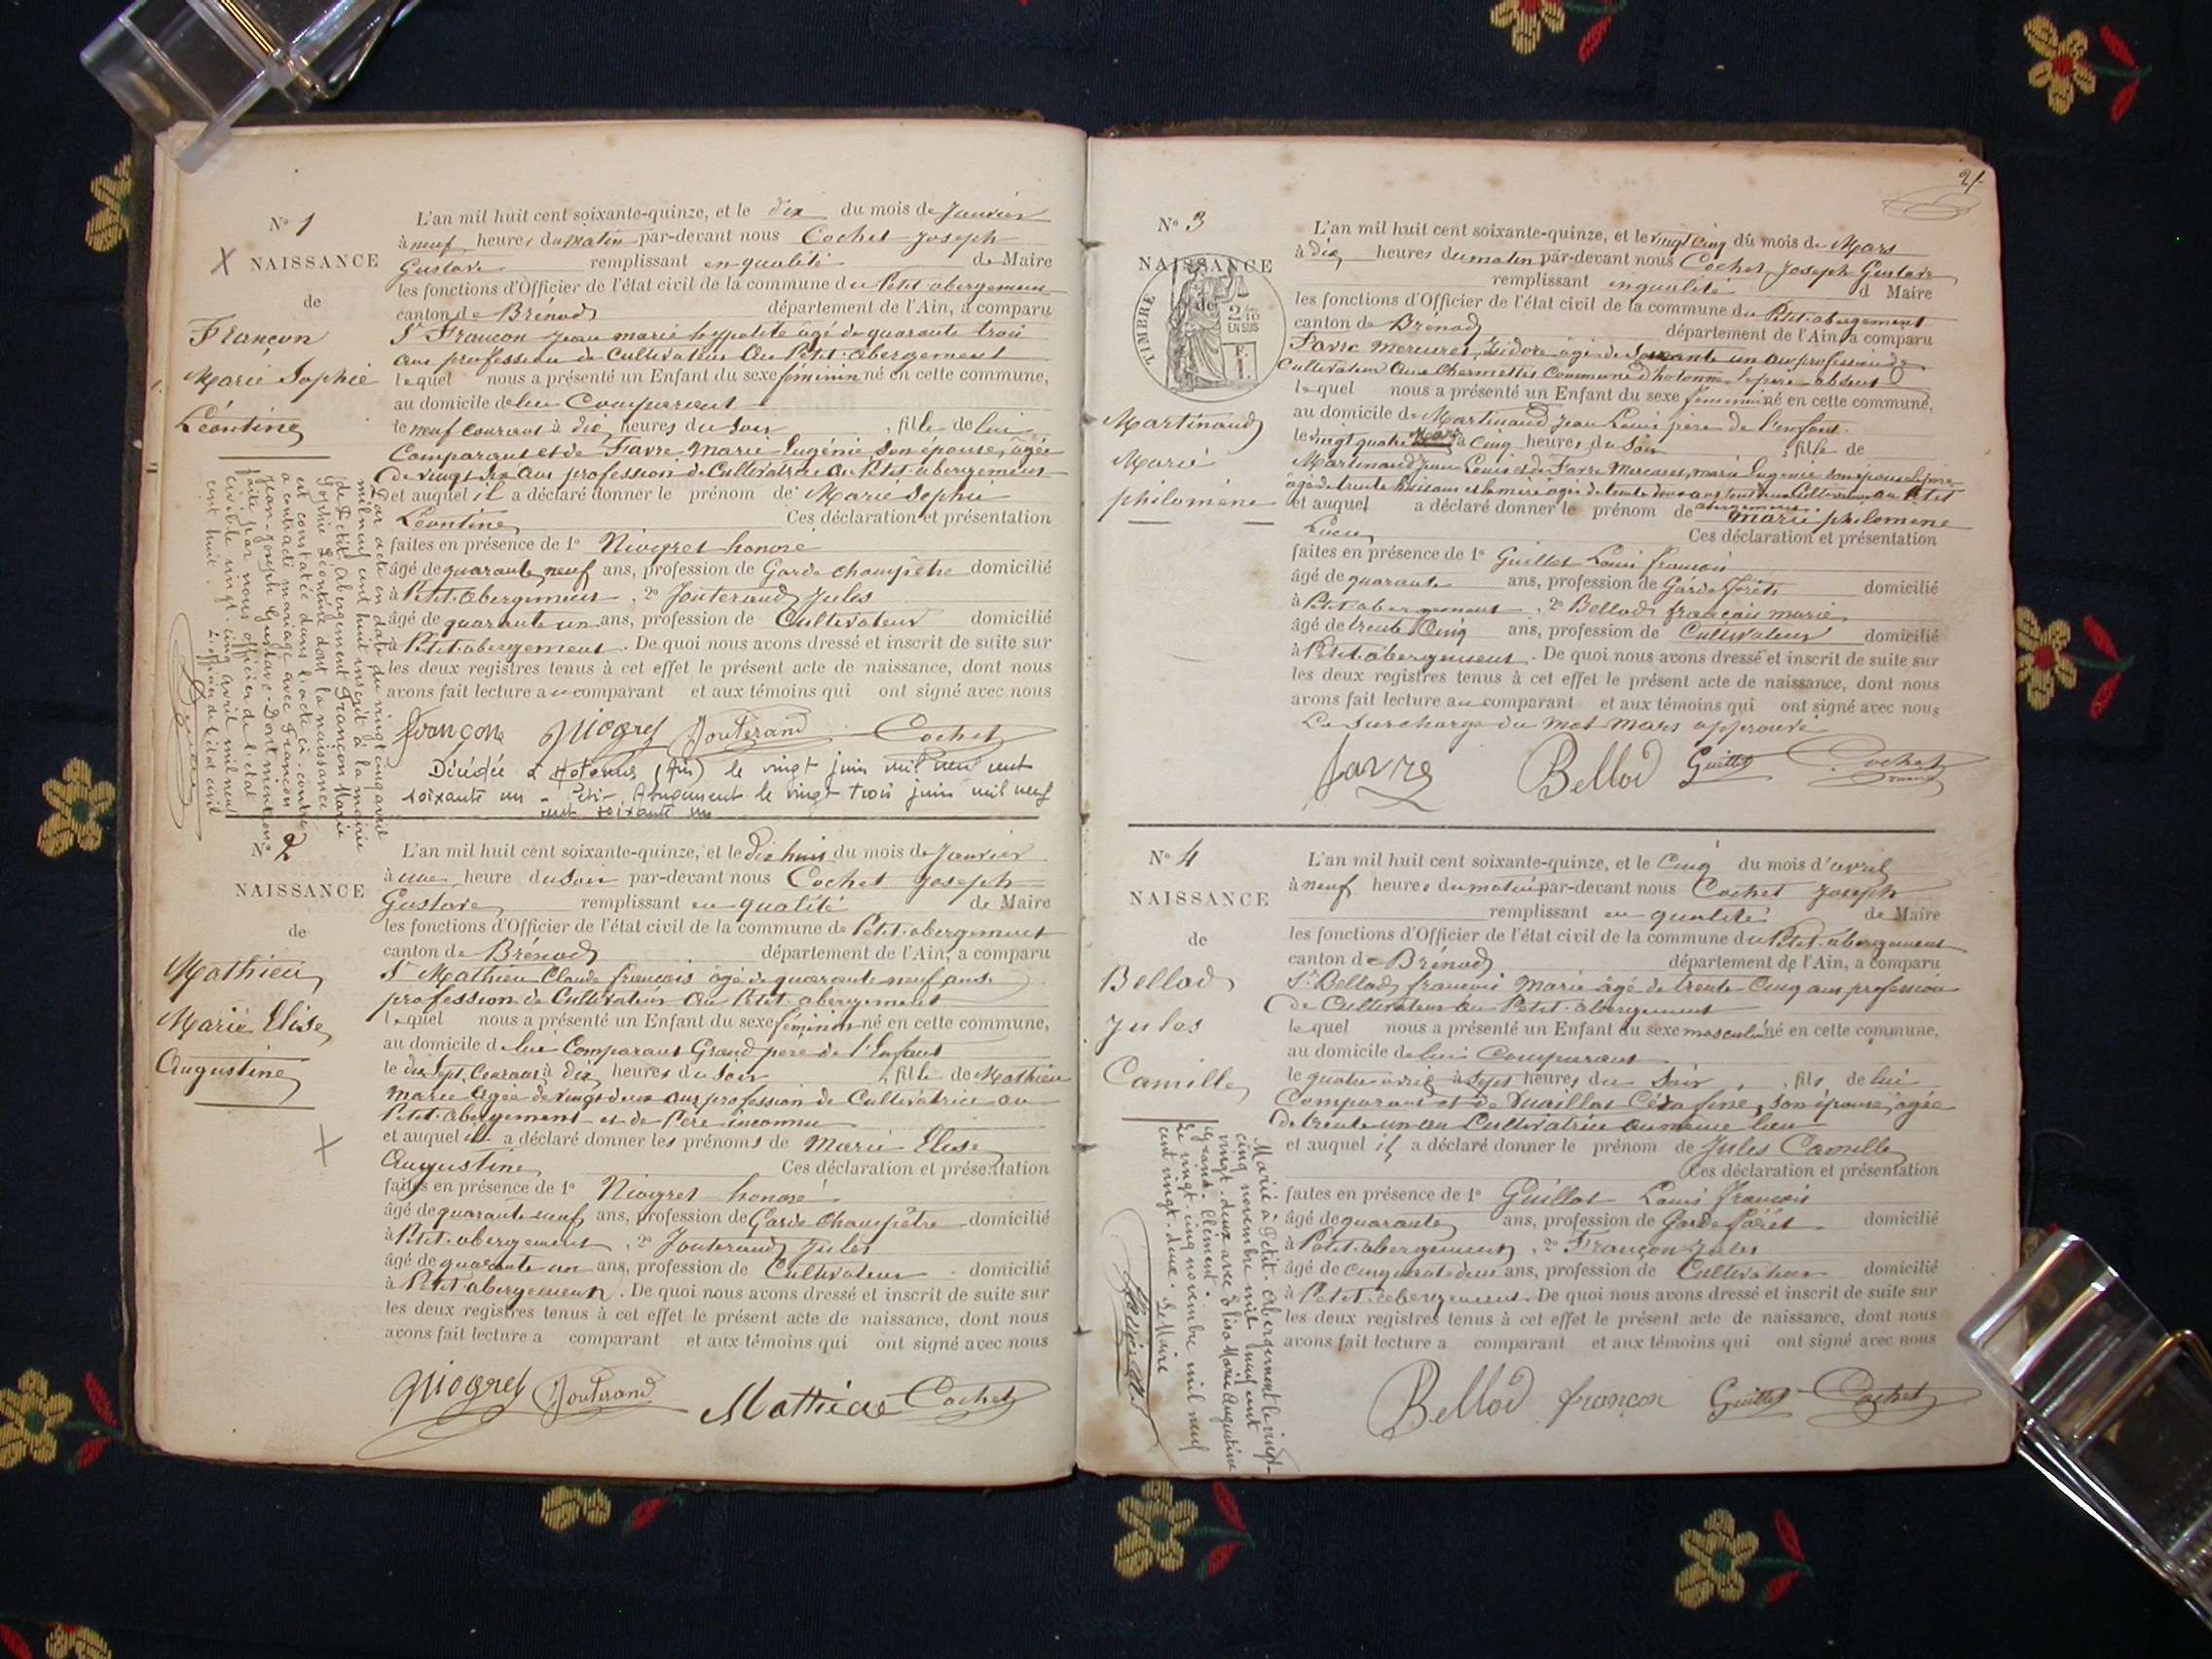 N° 1
NAISSANCE
de
Françon
Marie Sophie
Léontine
L'an mil huit cent soixante-quinze, et le dix du mois de Janvier
à neuf heures du matin par-devant nous Cochet Joseph
Gustave remplissant en qualité de Maire
les fonctions d'Officier de l'état civil de la commune du Petit abergement
canton de Brénod département de l'Ain, a comparu
Sr Françon Jean marie hyppolite âgé de quarante trois
ans profession de Cultivateur au Petit abergement
lequel nous a présenté un Enfant du sexe féminin né en cette commune,
au domicile de lui Comparant
le neuf courant à dix heures du soir, fille de lui
Comparant et de Favre Marie Eugénie son épouse, âgée
de vingt six ans profession de Cultivatrice au Petit abergement
et auquel il a déclaré donner le prénom de Marie Sophie
Léontine Ces déclaration et présentation
faites en présence de 1° Niogret honoré
âgé de quarante neuf ans, profession de Garde Champêtre domicilié
à Petit abergement, 2° Jouterand Jules
âgé de quarante un ans, profession de Cultivateur domicilié
à Petit abergement. De quoi nous avons dressé et inscrit de suite sur
les deux registres tenus à cet effet le présent acte de naissance, dont nous
avons fait lecture au comparant et aux témoins qui ont signé avec nous
françon Niogret Jouterand Cochet
Décédée à Hotonnes (Ain) le vingt juin mil neuf cent
soixante un - Petit Abergement le vingt trois juin mil neuf
cent soixante un
Par acte en date du vingt cinq avril
mil neuf cent huit inscrit à la mairie
de Petit Abergement Françon Marie
Sophie Léontine dont la naissance
est constatée dans l'acte ci-contre
a contracté mariage avec Françon
Jean-Joseph Gustave. Dont mention
faite par nous officier de l'état
civil le vingt-cinq avril mil neuf
cent huit. L'officier de l'état civil
N° 2
NAISSANCE
de
Mathieu
Marie Elise
Augustine
L'an mil huit cent soixante-quinze, et le dix huit du mois de Janvier
à une heure du soir par-devant nous Cochet Joseph
Gustave remplissant en qualité de Maire
les fonctions d'Officier de l'état civil de la commune de Petit abergement
canton de Brénod département de l'Ain, a comparu
Sr Mathieu Claude françois âgé de quarante neuf ans
profession de Cultivateur au Petit abergement
lequel nous a présenté un Enfant du sexe féminin né en cette commune,
au domicile de lui Comparant Grand père de l'Enfant
le dix Sept Courant à dix heures du soir, fille de Mathieu
marie âgée de vingt deux ans profession de Cultivatrice au
Petit abergement et de Père inconnu
et auquel il a déclaré donner les prénoms de Marie Elise
Augustine Ces déclaration et présentation
faites en présence de 1° Niogret honoré
âgé de quarante neuf ans, profession de Garde Champêtre domicilié
à Petit abergement, 2° Jouterand Jules
âgé de quarante un ans, profession de Cultivateur domicilié
à Petit abergement. De quoi nous avons dressé et inscrit de suite sur
les deux registres tenus à cet effet le présent acte de naissance, dont nous
avons fait lecture a comparant et aux témoins qui ont signé avec nous
Niogret Jouterand Mathieu Cochet
2
N° 3
NAISSANCE
de
TIMBRE
2/10
EN SUS
F.
1.
Martinaud
Marie
philomène
L'an mil huit cent soixante-quinze, et le vingt cinq du mois de Mars
à dix heures du matin par-devant nous Cochet Joseph Gustave
remplissant en qualité d Maire
les fonctions d'Officier de l'état civil de la commune du Petit abergement
canton de Brénod département de l'Ain, a comparu
Favre Mercuret, Isidore âgé de Soixante un ans profession de
Cultivateur aux Chermettes Commune d'hotonnes le père absent
lequel nous a présenté un Enfant du sexe féminin né en cette commune,
au domicile de Martinaud Jean Louis père de l'enfant
le vingt quatre Mars à Cinq heures du Soir, fille de
Martinaud Jean Louis et de Favre Mercuret, marie Eugénie son épouse le père
âgé de trente huit ans et la mère âgée de trente deux ans tous deux Cultivateurs au Petit
abergement
et auquel a déclaré donner le prénom de marie philomène
Lucie Ces déclaration et présentation
faites en présence de 1° Guillot Louis françois
âgé de quarante ans, profession de Garde Forêts domicilié
à Petit abergement, 2° Bellod français marie
âgé de trente Cinq ans, profession de Cultivateur domicilié
à Petit abergement. De quoi nous avons dressé et inscrit de suite sur
les deux registres tenus à cet effet le présent acte de naissance, dont nous
avons fait lecture au comparant et aux témoins qui ont signé avec nous
La Surcharge du mot mars approuvé
favre Bellod Guillot Cochet
N° 4
NAISSANCE
de
Bellod
Jules
Camille
L'an mil huit cent soixante-quinze, et le Cinq du mois d'avril
à neuf heures du matin par-devant nous Cochet Joseph
remplissant en qualité de Maire
les fonctions d'Officier de l'état civil de la commune du Petit abergement
canton de Brénod département de l'Ain, a comparu
Sr Bellod françois Marie âgé de trente Cinq ans profession
de Cultivateur au Petit abergement
lequel nous a présenté un Enfant du sexe masculin né en cette commune,
au domicile de lui Comparant
le quatre avril à Sept heures du Soir, fils de lui
Comparant et de Maillot Césarine, son épouse, âgée
de trente un an Cultivatrice au même lieu
et auquel il a déclaré donner le prénom de Jules Camille
Ces déclaration et présentation
faites en présence de 1° Guillot Louis françois
âgé de quarante ans, profession de Garde forêt domicilié
à Petit abergement, 2° Françon Jules
âgé de cinquante deux ans, profession de Cultivateur domicilié
à Petit abergement. De quoi nous avons dressé et inscrit de suite sur
les deux registres tenus à cet effet le présent acte de naissance, dont nous
avons fait lecture a comparant et aux témoins qui ont signé avec nous
Bellod françon Guillot Cochet
Marié à Petit-Abergement le vingt-
cinq novembre mil neuf cent
vingt-deux avec Elisa Marie Augustine
Le vingt-cinq novembre mil neuf
cent vingt-deux. Le Maire